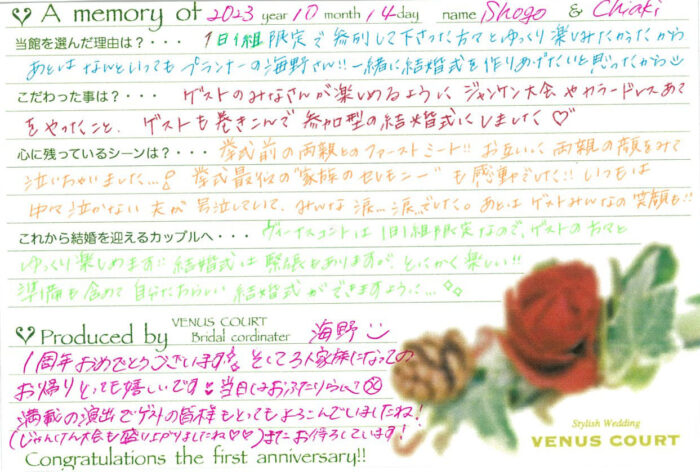 A memory of 2023 year 10 month 14 day name Shogo & Chiaki
当館を選んだ理由は？・・・ 1日1組限定で参列して下さった方々とゆっくり楽しみたかったから
あとはなんといってもプランナーの海野さん!! 一緒に結婚式を作りあげたいと思ったから
こだわった事は？・・・ ゲストのみなさんが楽しめるように ジャンケン大会やカラードレスあて
をやったこと、ゲストも巻きこんで参加型の結婚式にしました♡
心に残っているシーンは？・・・ 挙式前の両親とのファーストミート!! お互いに両親の顔をみて
泣いちゃいました...。 挙式最後の"家族のセレモニー"も感動でした!! いつもは
中々泣かない夫が号泣していて、みんな涙...涙でした。あとはゲストみんなの笑顔も!!
これから結婚を迎えるカップルへ・・・ ヴィーナスコートは1日1組限定なので、ゲストの方々と
ゆっくり楽しめます!! 結婚式は緊張もありますが とにかく楽しい!!
準備も含めて自分たちらしい結婚式ができますように...
Produced by VENUS COURT Bridal cordinater 海野
1周年おめでとうございます そして3人家族になっての
お帰りとっても嬉しいです 当日はおふたりらしさ
満載の演出でゲストの皆様もとってもよろこんでいましたね！
(じゃんけん大会も盛り上がりましたね♡♡)またお待ちしています！
Congratulations the first anniversary!!
Stylish Wedding
VENUS COURT